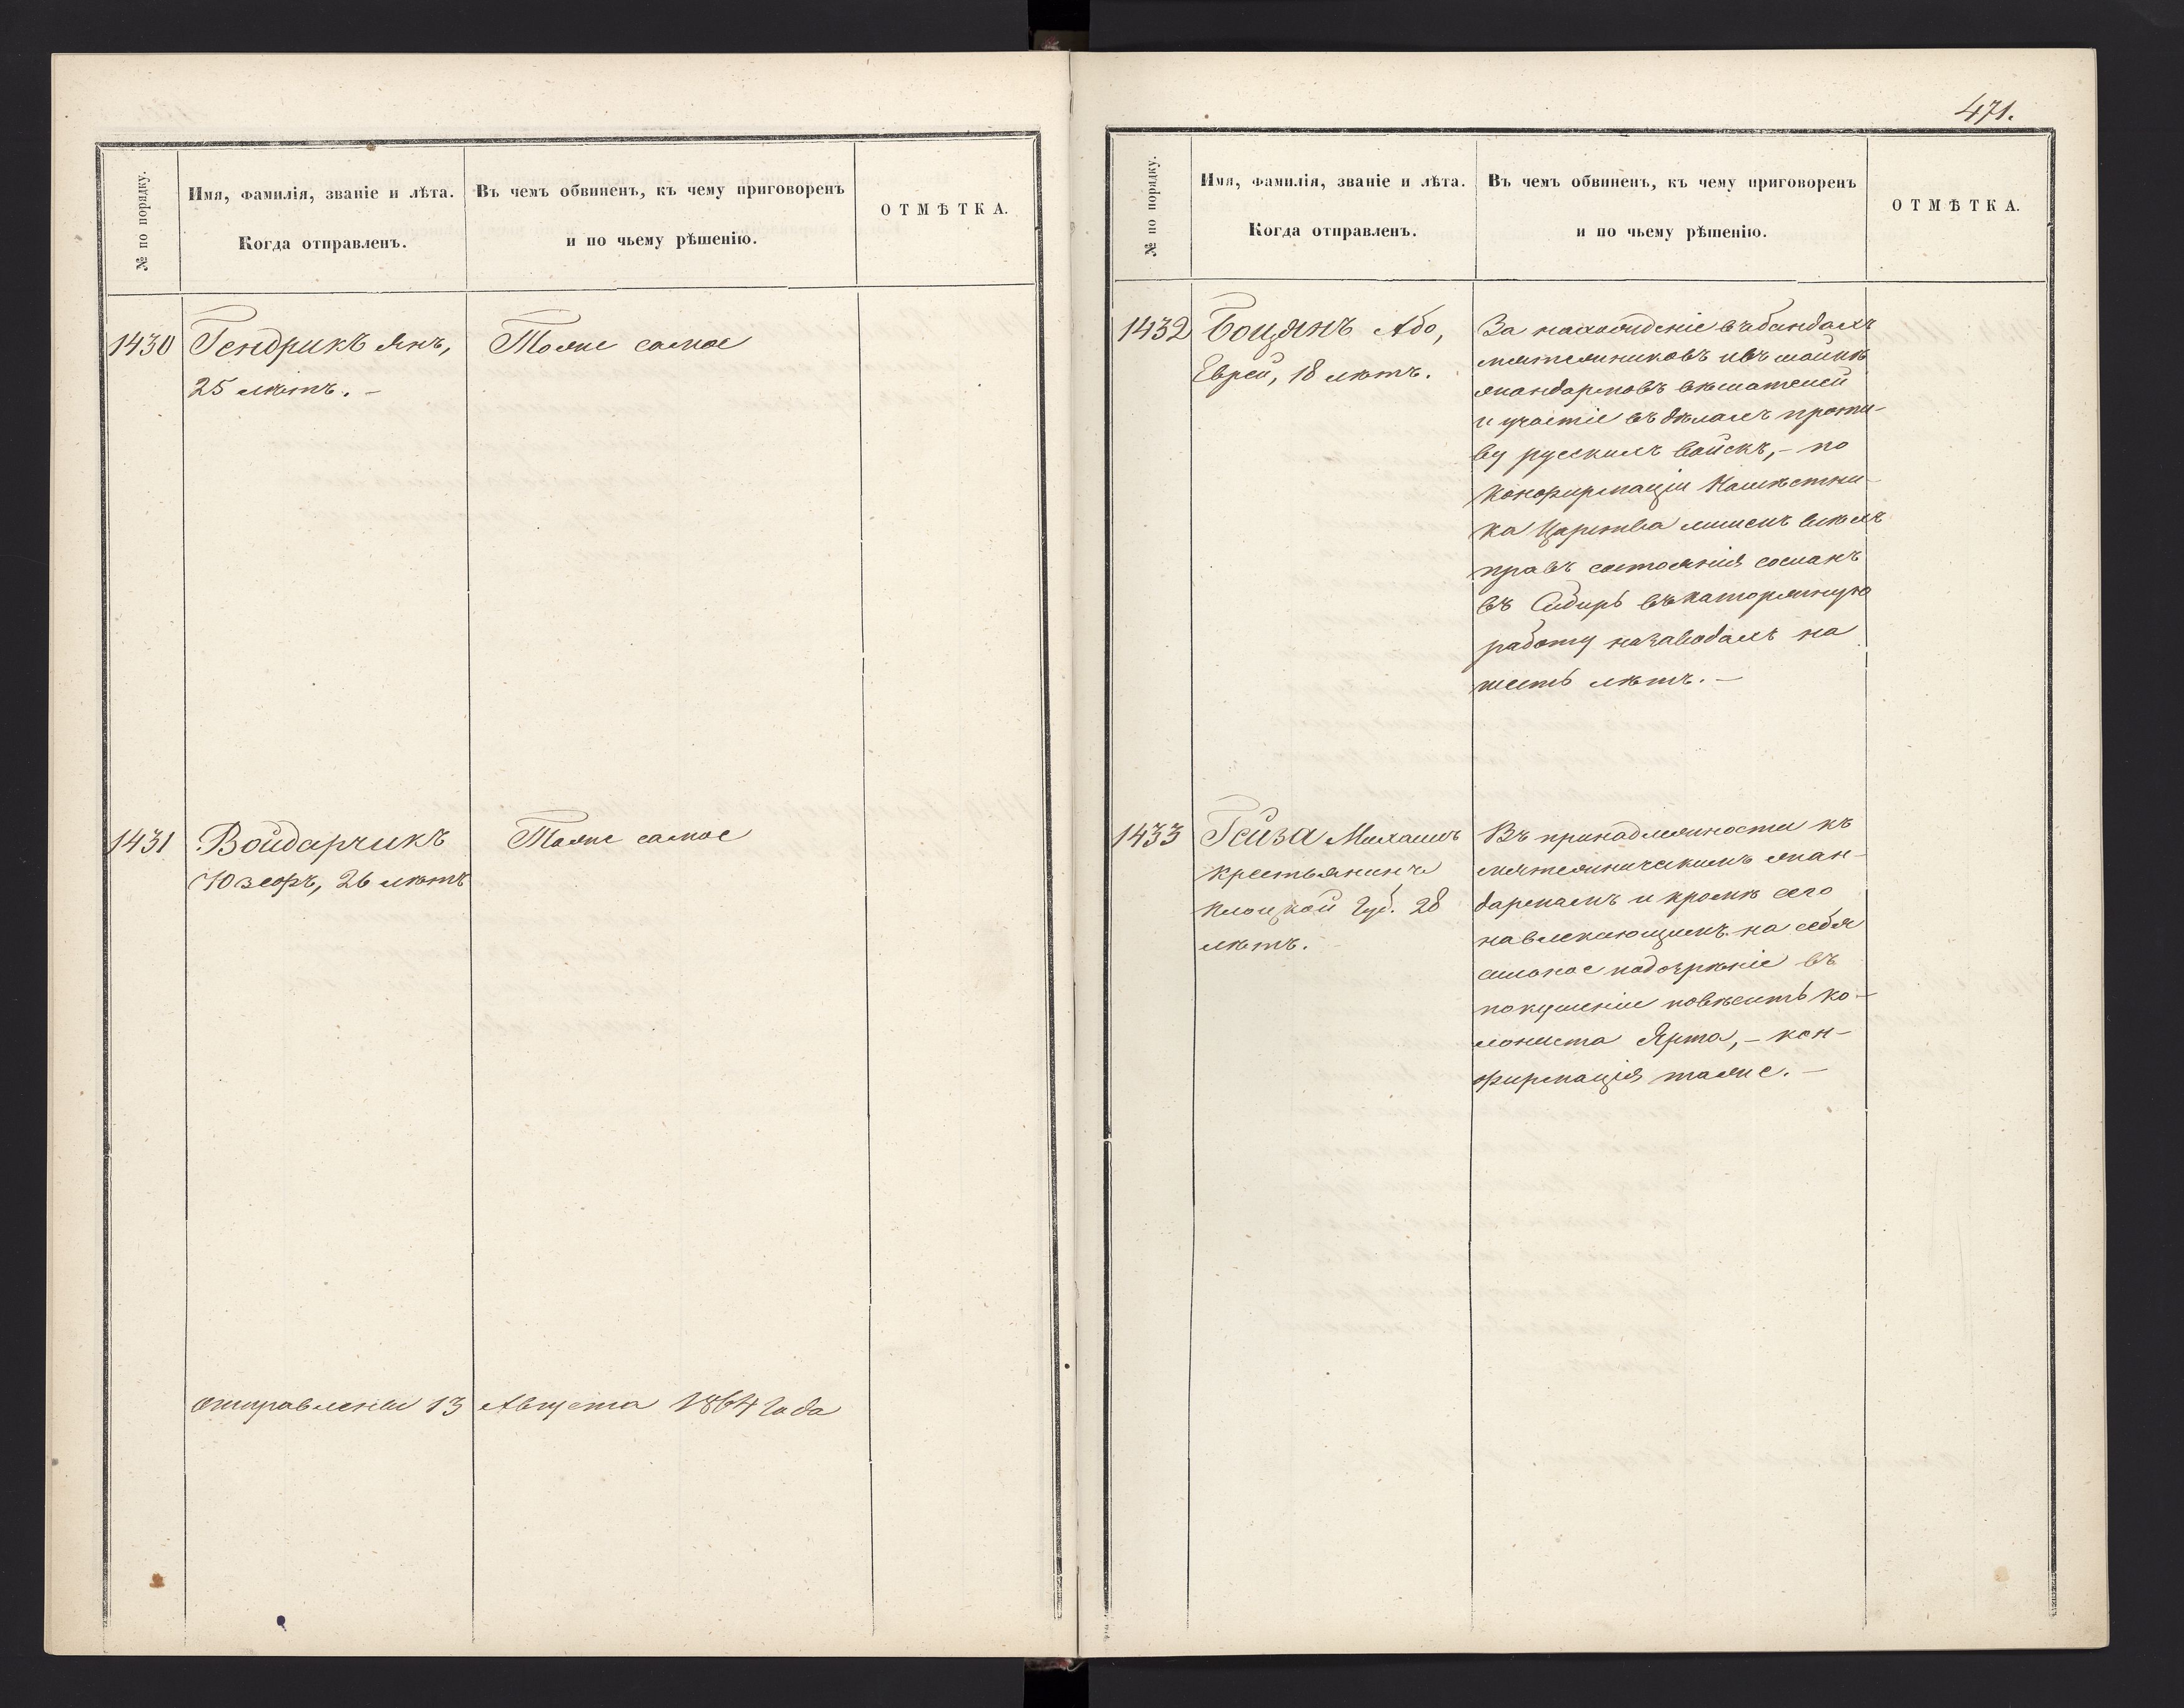 № по порядку.
Имя, фамилія, званіе и лѣта.
Когда отправленъ.
Въ чемъ обвиненъ, къ чему приговоренъ
и по чьему рѣшенію.
ОТМѢТКА.
1430
Гендрикъ Янъ,
25 лѣтъ. –
Тоже самое
1431
Войдарчикъ
Юзефъ, 26 лѣтъ
Тоже самое
отправлены 13 Августа 1864 года
471.
№ по порядку.
Имя, фамилія, званіе и лѣта.
Когда отправленъ.
Въ чемъ обвиненъ, къ чему приговоренъ
и по чьему рѣшенію.
ОТМѢТКА.
1432
Боцянъ Або,
Еврей, 18 лѣтъ.
За нахожденіе въ бандахъ
мятежниковъ и въ шайкѣ
жандармовъ вѣшателей
и участіе въ дѣлахъ проти-
ву русскихъ войскъ, – по
конфирмаціи Намѣстни-
ка Царства лишенъ всѣхъ
правъ состоянія сосланъ
въ Сибирь въ каторжную
работу на заводахъ на
шесть лѣтъ. –
1433
Гейза Михаилъ
крестьянинъ
Плоцкой Губ. 28
лѣтъ.
Въ принадлежности къ
мятежническимъ жан-
дармамъ и кромѣ сего
навлекающимъ на себя
сильное подозрѣніе въ
покушеніи повѣсить ко-
лониста Ярта, – кон-
фирмація таже. –